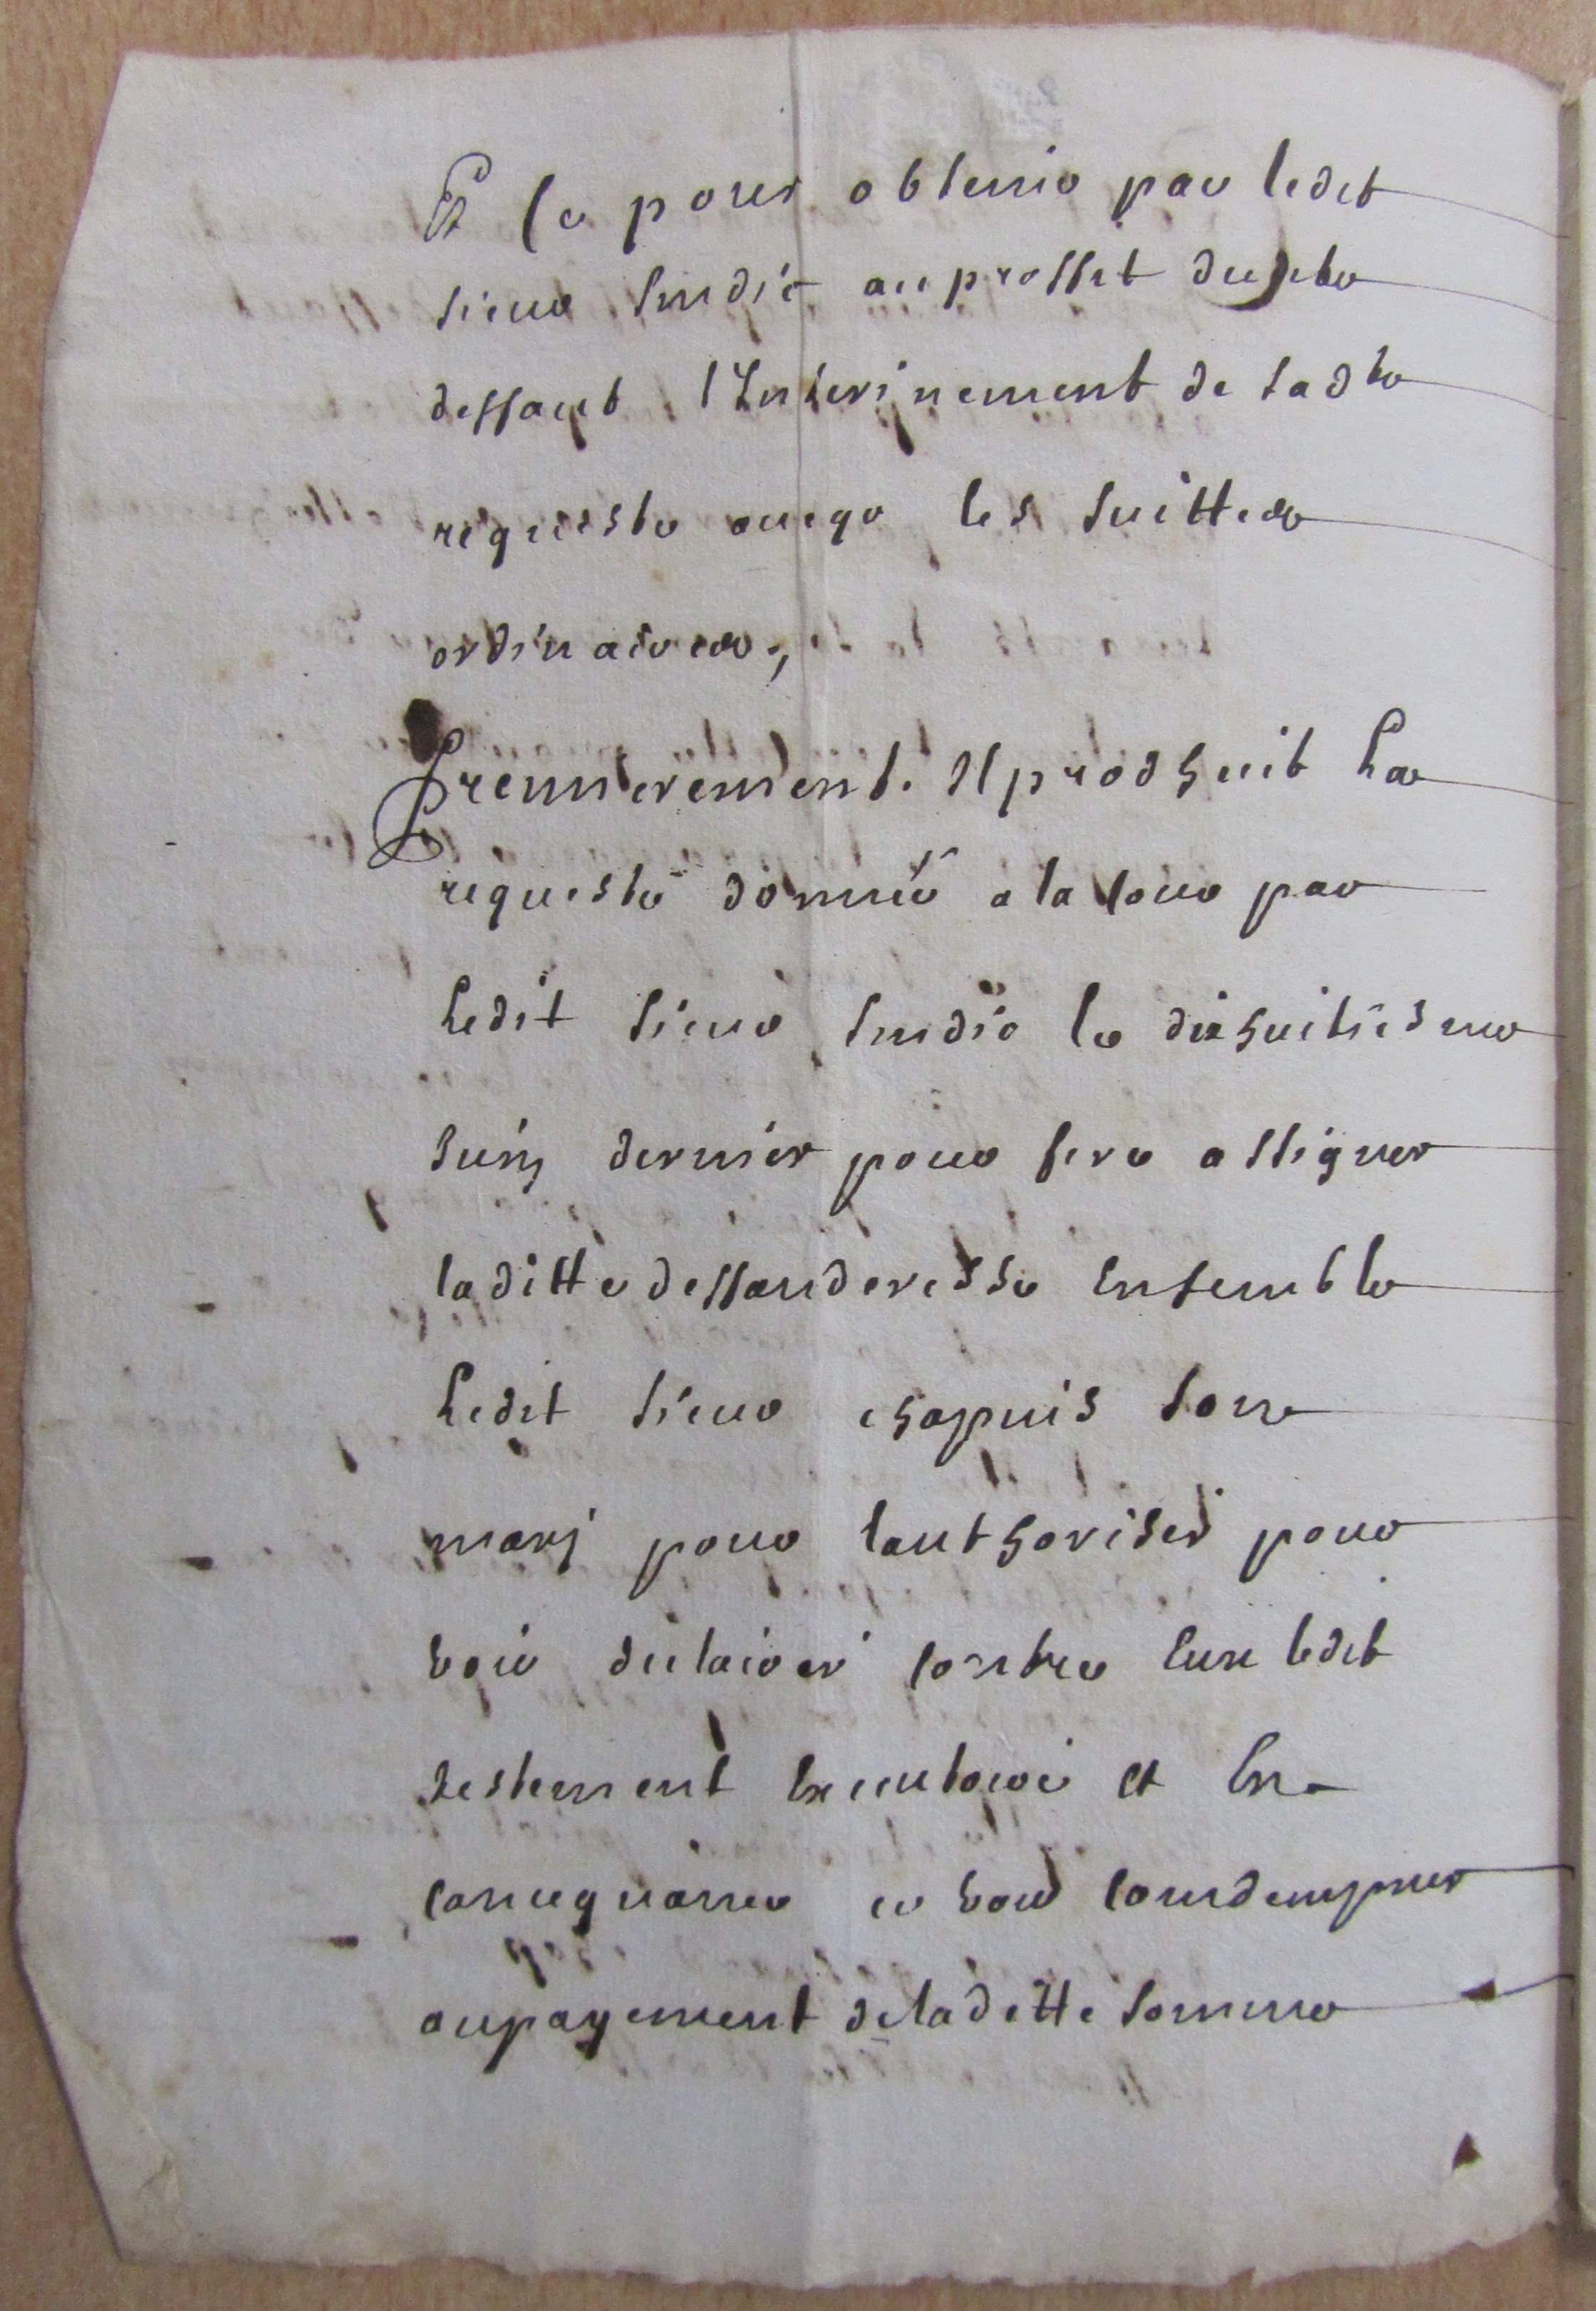 Et ce pour obtenir par ledit
sieur sindic au proffit dudit
deffaut l'Interinement de sadte
requeste aveqe les suittes
ordinaires,
Premierement. Il prodhuit La
requeste donnée a la cour par
Ledit sieur sindic le dixhuitiesme
Juin dernier pour fere assigner
laditte deffanderesse Ensemble
Ledit sieur chapuis son
marj pour lauthoriser pour
voir déclairer contre Eux ledit
testement Executoire et En
consequance ce voir condempner
au payement de laditte somme